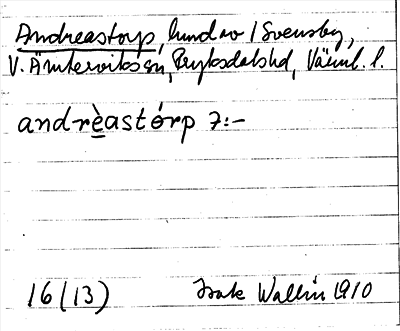 Andreastorp, hund av / Svensby,
V. Ämterviks sn, Fryksdals hd, Värml. l.
andrèastórp 7:-
16 (13) Isak Wallin 1910